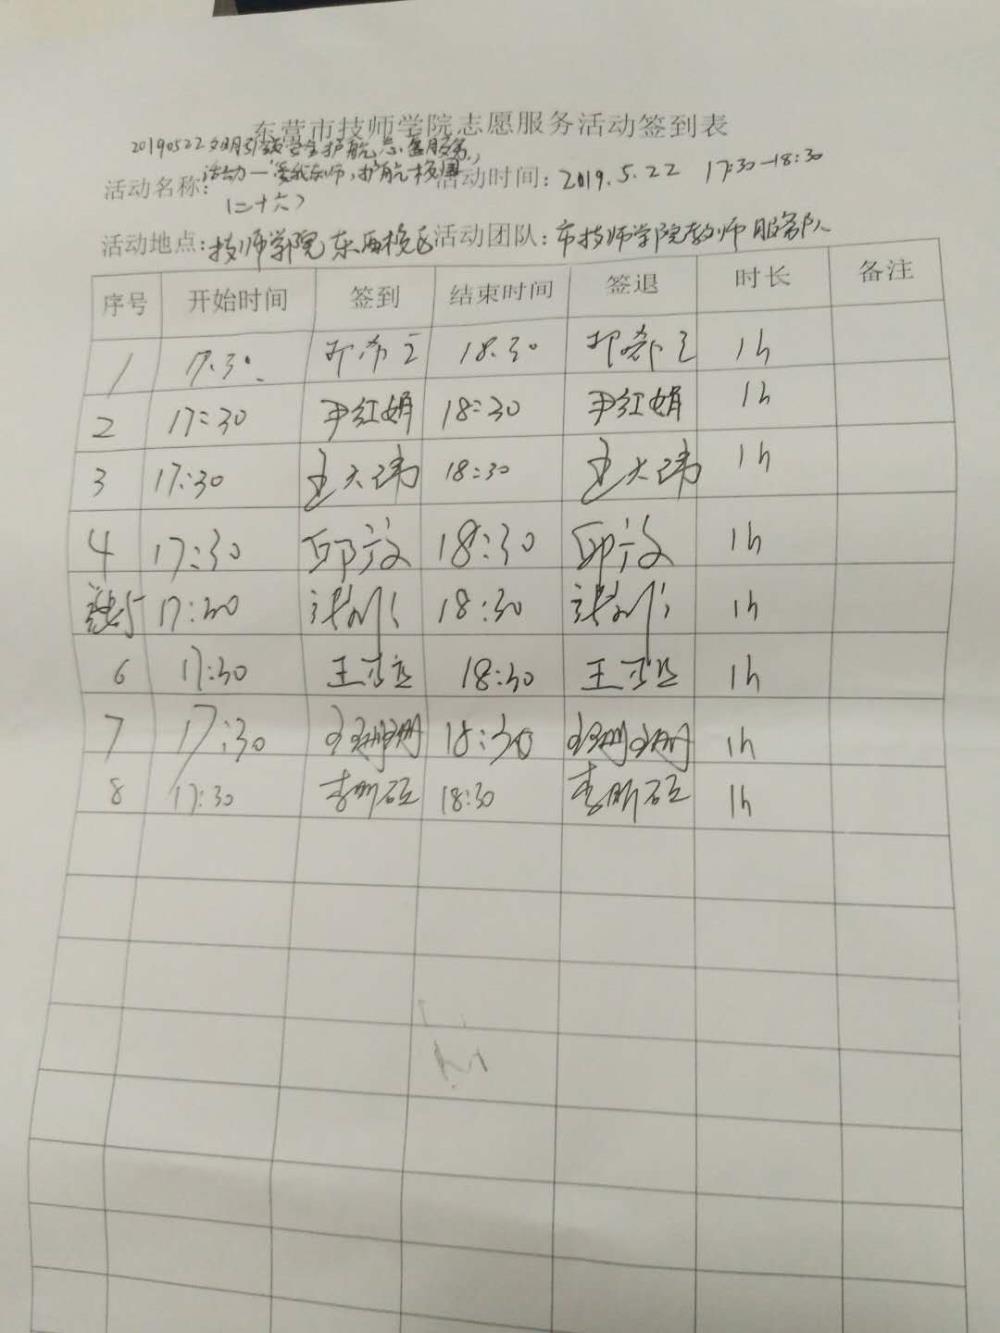 东营市技师学院志愿服务活动签到表
20190522文明引领学生护航志愿服务
活动名称：活动一"爱我东师，护航校园 活动时间：2019.5.22 17:30-18:30
（二十六）
活动地点：技师学院东西校区 活动团队：市技师学院教师服务队
序号 开始时间 签到 结束时间 签退 时长 备注
1 17:30 18:30 1h
2 17:30 尹红娟 18:30 尹红娟 1h
3 17:30 王大玮 18:30 王大玮 1h
4 17:30 邱放 18:30 邱放 1h
5 17:30 18:30 1h
6 17:30 18:30 1h
7 17:30 王珊珊 18:30 王珊珊 1h
8 17:30 李昕砡 18:30 李昕砡 1h